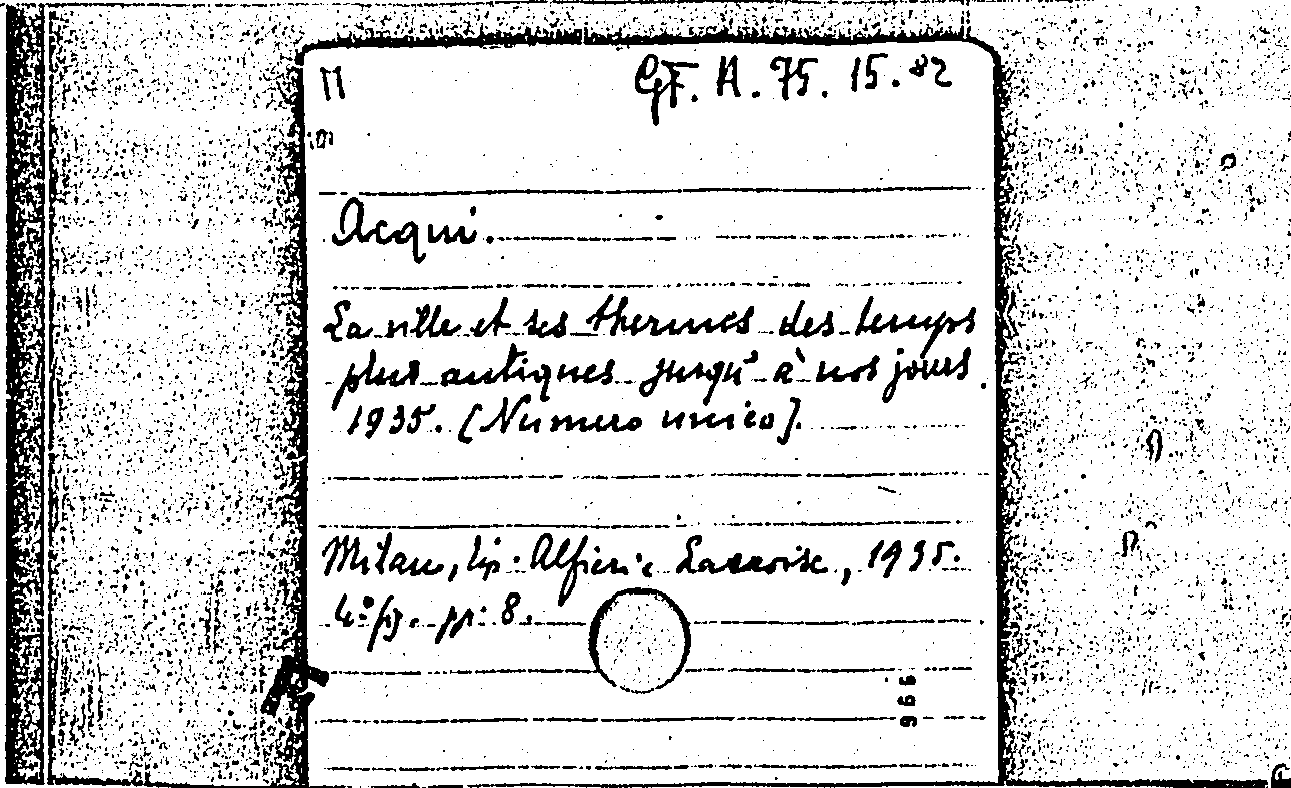 GF. A. 75. 15. 82
Acqui.
La ville et ses thermes des temps
plus antiques jusqu'à nos jours.
1935. [Numero unico].
Milan, tip. Alfieri e Lacroix, 1935.
4°fig. pp. 8.
966